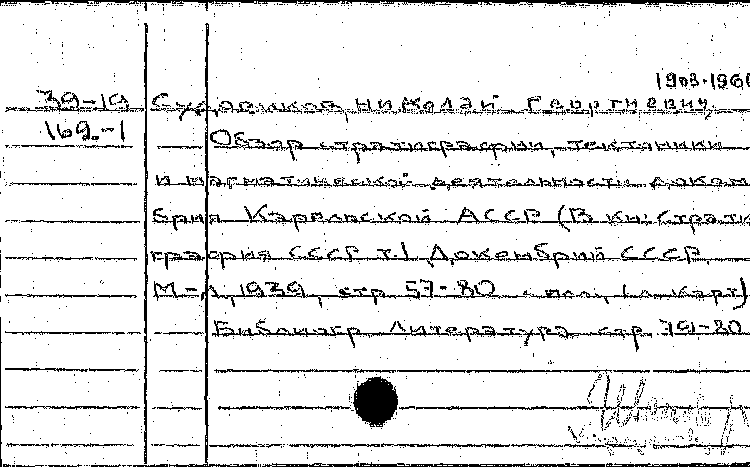 1903-196
39-19 Судовиков, Николай Георгиевич,
169.-1 Обзор стратиграфии, тектоники
и магматической деятельности докем
брия Карельской АССР (В кн: Страти
графия СССР т.1 Докембрий СССР
М-Л, 1939, стр 57-80 с илл, 1 л. карт)
Библиогр Литература стр. 79-80